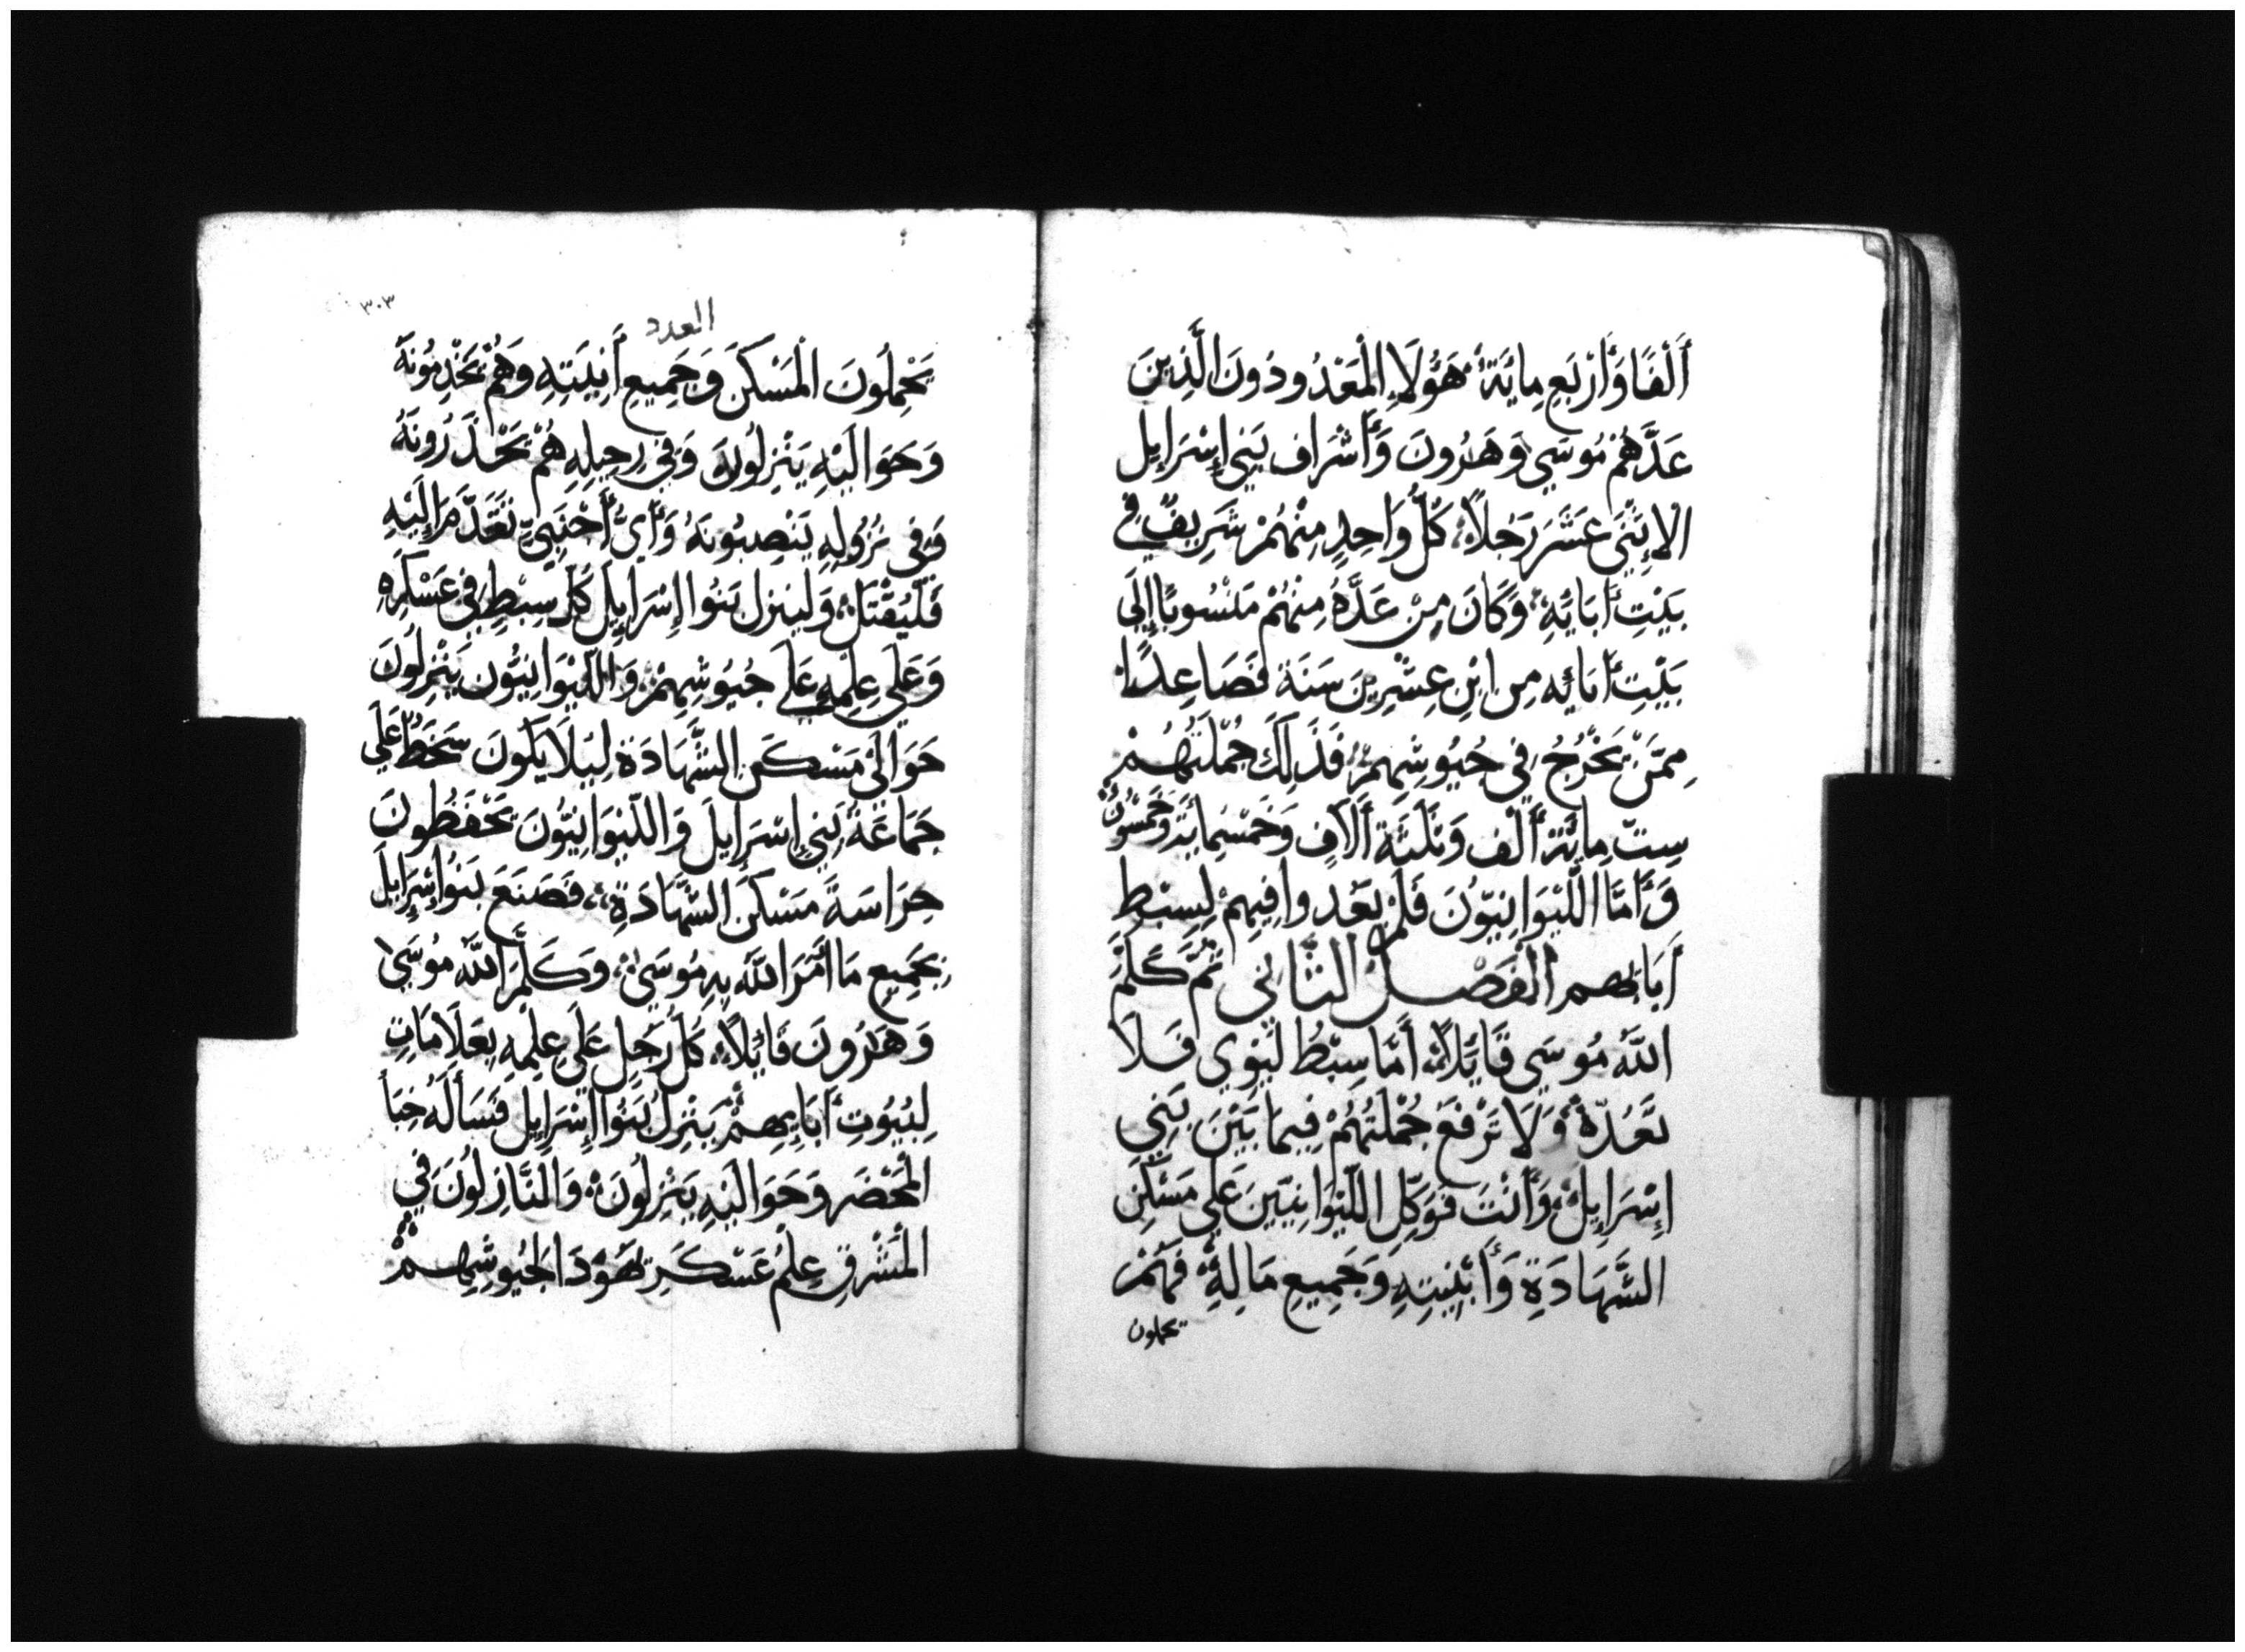 أَلْفًا وَأَرْبَعِ مِائَةٍ هَؤُلَاءِ الْمَعْدُودُونَ الَّذِينَ
عَدَّهُمْ مُوسَي وَهَرُونَ وَأَشْرَاف بَنِي إِسْرَايِل
الإِثْنَي عَشَرَ رَجُلاً كُلُّ وَاحِدٍ مِنْهُمْ شَرِيفٌ فِي
بَيْتِ أَبَايِهِ وَكَانَ مِنْ عَدَّهُ مِنْهُمْ مَنْسُوبًا إِلَي
بَيْتِ أَبَائِه مِن ابْنِ عِشْرِينَ سَنَة فَصَاعِدًا
مِمَّنْ يَخْرُجُ فِي جُيُوشِهِمْ فَذَلِكَ جُمْلَتُهُمْ
سِتّ مِايَةِ أَلْف وَثَلَثَةِ أَلَافٍ وَخَمْسِمِايَةٍ وَخَمْسُونَ
وَأَمَّا اللَّيْوَانِيّوُنَ فَلَمْ يَعُدوا فِيهِمْ لِسِبْطِ
أَبَايِهِم الْفَصْل الثَّانِي ثُمَّ كَلَّمَ
اللَّهُ مُوسَي قَايِلاً أَمَّا سِبْطُ لَيْوِي فَلَا
تَعُدّهُ وَلَا تَرْفَعْ جُمْلَتُهُمْ فِيمَا بَيْنَ بَنِي
إِسْرَايِلَ وَأَنْتَ فَوَكِّلِ اللَّيْوَانِيِّينَ عَلَي مَسْكَنِ
الشَّهَادَةِ وَأَنْيَتِهِ وَجَمِيعِ مَا لِهِ فَهُمْ
يحملون
العدد
٣٠٣
يَحْمِلُونَ الْمَسْكَنَ وَجَمِيعِ أَنْيَتِهِ وَهُمْ يَخْدِمُونَهُ
وَحَوَالَيْهِ يَنْزِلُونَ وَفِي رَحِيلِهِ هُمْ يَحْذَرُونَهُ
وَفِي نُزُولِهِ يَنْصِبُونَهُ وَأَيُّ أَجْنَبِيٍّ تَقَدَّمَ إِلَيْهِ
فَلْيُقْتَلْ وَلْيَنزل بَنُوا إِسْرَايِلَ كُلّ سِبْطٍ فِي عَسْكَرِهِ
وَعَلَي عِلْمِهِ عَلَي جُيُوشِهِمْ وَاللَّيْوَانِيُّون يَنْزِلُونَ
حَوَالَيْ مَسْكَنِ الشَّهَادَة لِيَلَا يَكُونَ سَخَطٌ عَلَي
جَمَاعَةِ بَنِي إِسْرَايِلَ وَاللَّيْوَانِيُّونَ يَحْفَظُونَ
حِرَاسَةَ مَسْكَنِ الشَّهَادَةِ فَصَنَعَ بَنُوا إِسْرَايِلَ
بِجَمِيعِ مَا أَمَرَ اللَّهُ بِهِ مُوسَي وَكَلَّمَ اللَّهُ مُوسَي
وَهَرُونَ قَائِلاً كُلّ رَجُلٍ عَلَي عِلْمِهِ بِعَلَامَاتِ
لِبُيُوتِ أَبَايِهِمْ يَنْزِلُ بَنُوا إِسْرَايِل
الْمَحْضَر وَحَوَالَيْهِ يَنْزِلُونَ وَالنَّازِلُونَ فِي
الْمَشْرِقِ عِلْمُ عَسْكَرِ يَهُوْدَا لِجُيُوشِهِمْ